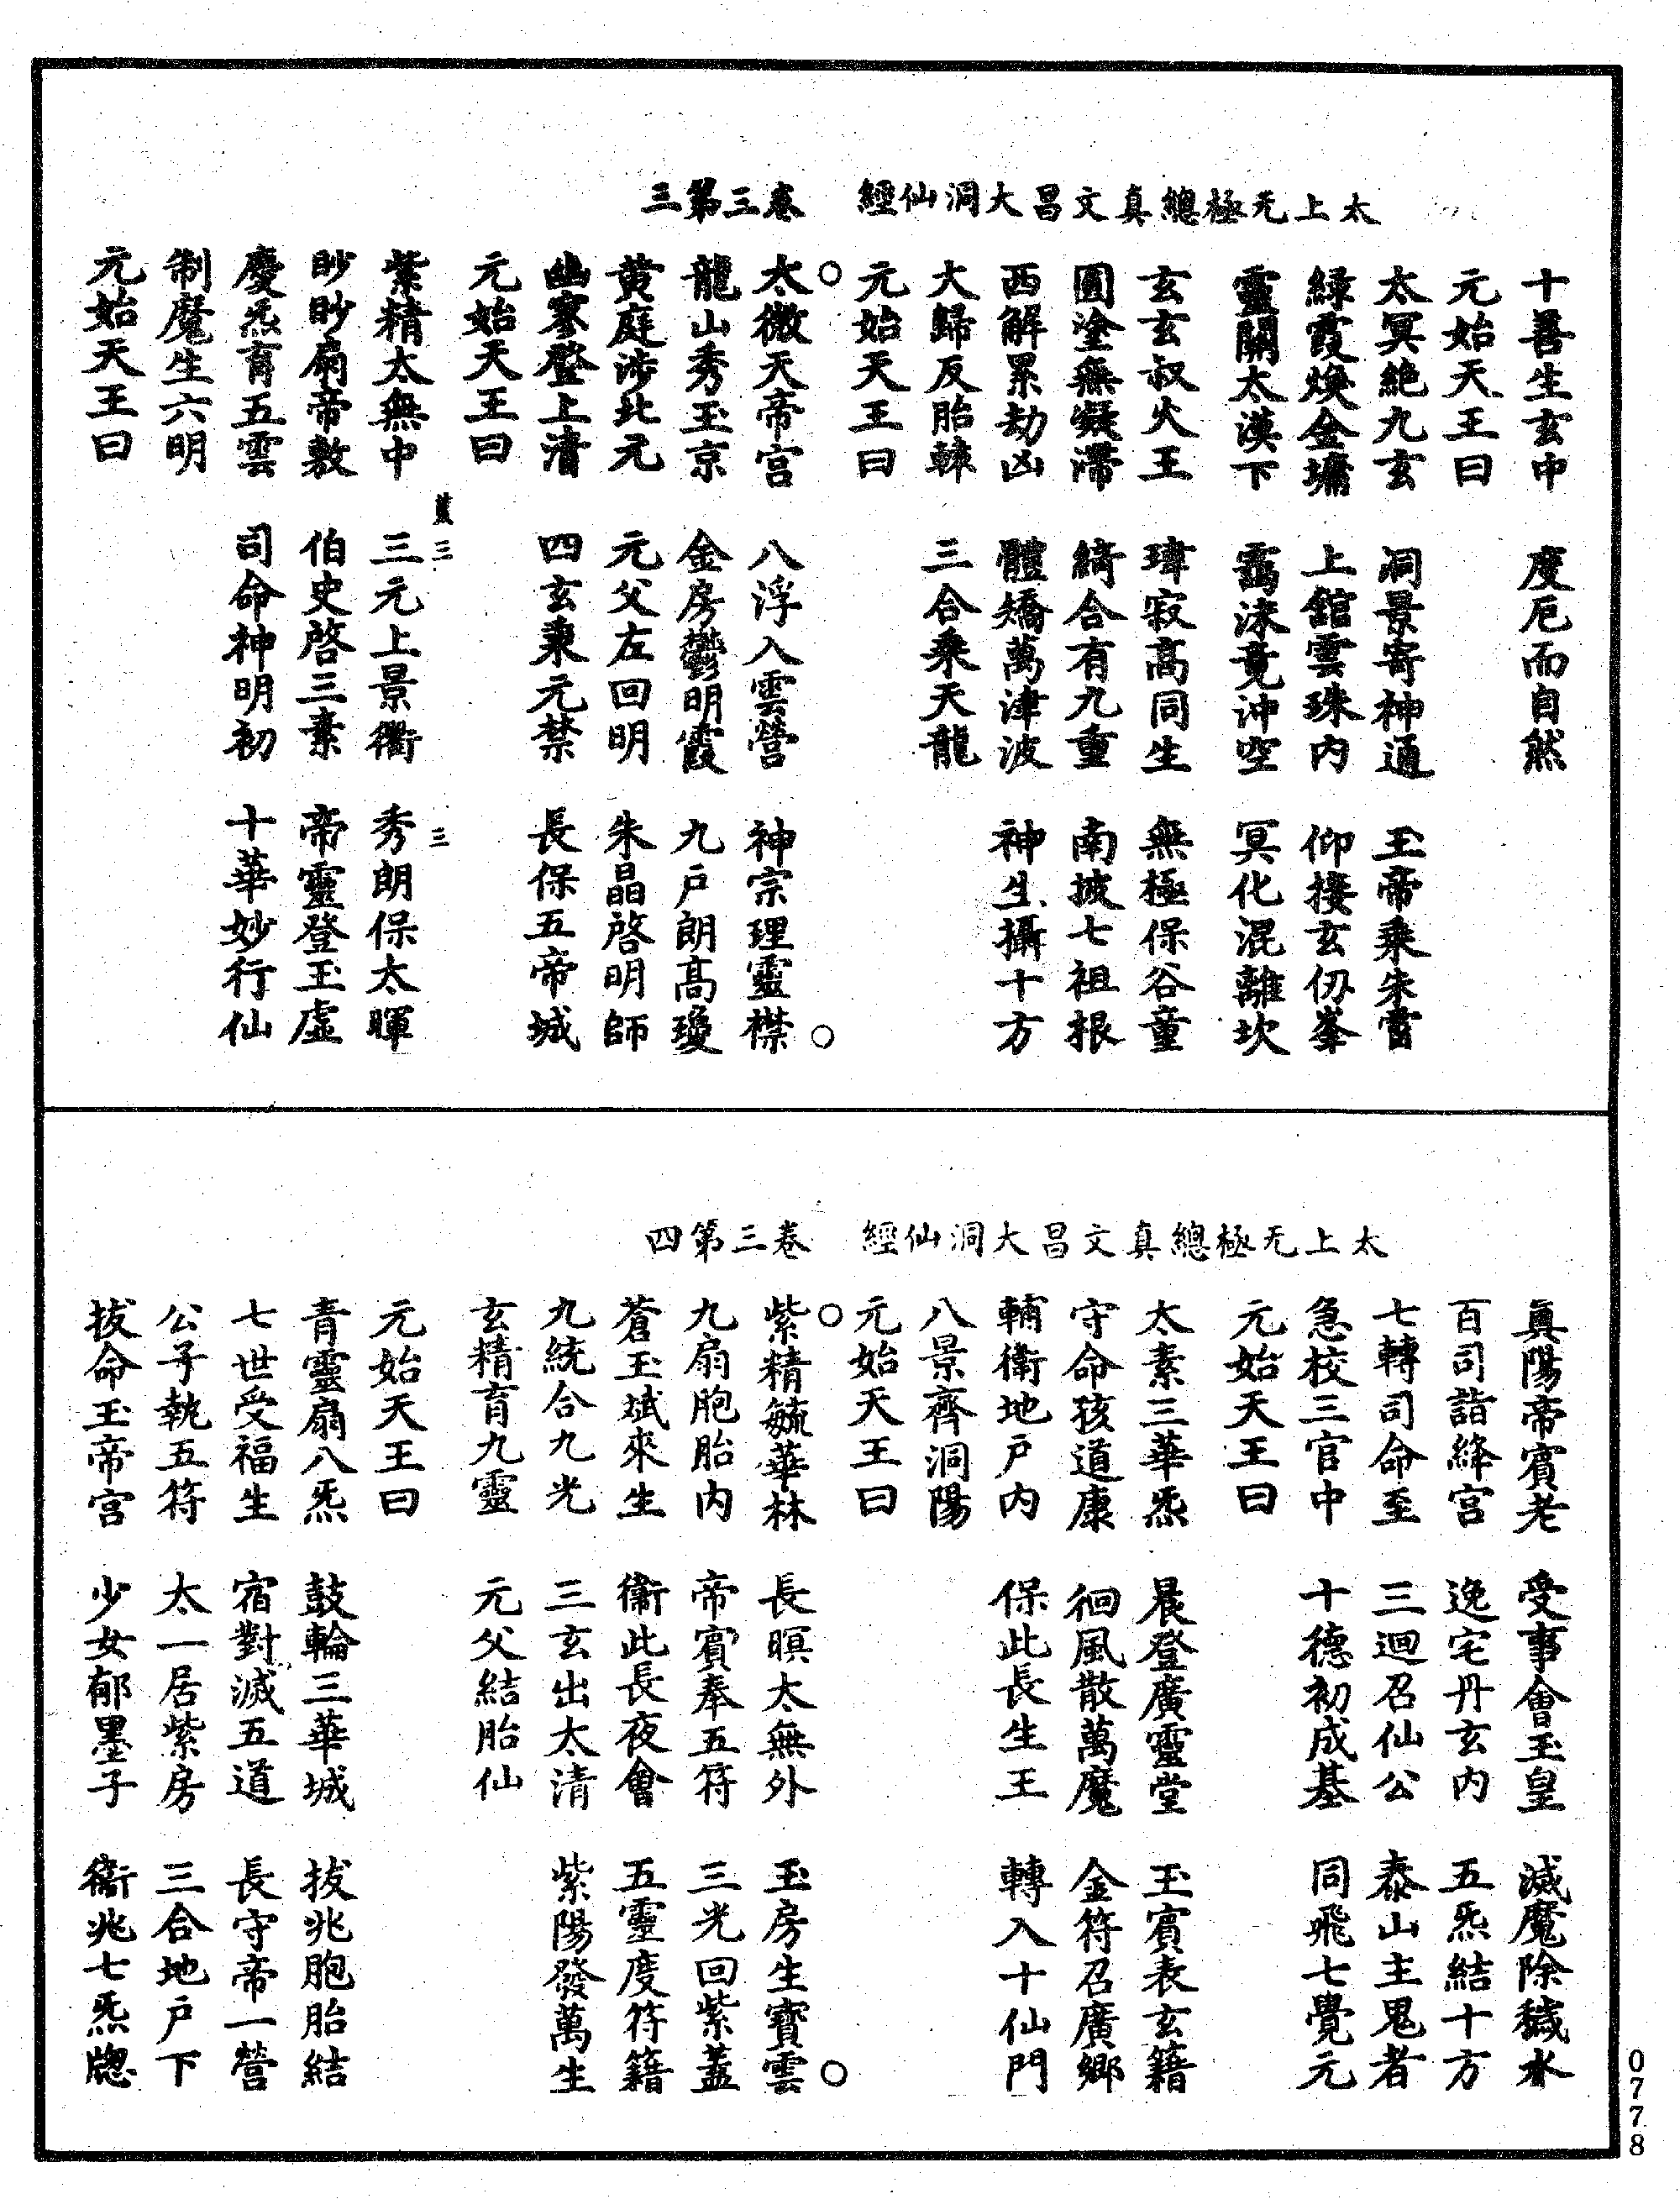 太上无極總真文昌大洞仙經　卷三第三
十善生玄中　度厄而自然
元始天王曰
太冥絶九玄　洞景寄神通　玉帝乘朱霄
綠霞煥金墉　上館雲珠内　仰接玄仞峯
靈關太漠下　靄沫竟沖空　冥化混離坎
玄玄叔火王　瑋寂高同生　無極保谷童
圓塗無凝滯　綺合有九重　南披七祖根
西解累劫凶　體矯萬津波　神生攝十方
大歸反胎棘　三合乘天龍
元始天王曰
○太微天帝宫　八浮入雲營　神宗理靈襟○
龍山秀玉京　金房鬱明霞　九户朗高瓊
黄庭涉北元　元父左回明　朱晶啓明師
幽寥登上清　四玄秉元禁　長保五帝城
元始天王曰
薑三　三
紫精太無中　三元上景衢　秀朗保太暉
眇眇扇帝敷　伯史啓三素　帝靈登玉虛
慶炁育五雲　司命神明初　十華妙行仙
制魔生六明
元始天王曰
太上无極總真文昌大洞仙經　卷三第四
真陽帝賓老　受事會玉皇　滅魔除穢水
百司詣絳宫　逸宅丹玄内　五炁結十方
七轉司命至　三迴召仙公　泰山主鬼者
急校三官中　十德初成基　同飛七覺元
元始天王曰
太素三華炁　晨登廣靈堂　玉賓表玄籍
守命孩道康　徊風散萬魔　金符召廣鄉
輔衛地户内　保此長生王　轉入十仙門
八景齊洞陽
元始天王曰
○紫精毓華林　長暝太無外　玉房生寶雲○
九扇胞胎内　帝賓奉五符　三光回紫蓋
蒼玉斌來生　衛此長夜會　五靈度符籍
九統合九光　三玄出太清　紫陽發萬生
玄精育九靈　元父結胎仙
元始天王曰
青靈扇八炁　鼓輪三華城　拔兆胞胎結
七世受福生　宿對滅五道　長守帝一營
公子執五符　太一居紫房　三合地户下
拔命玉帝宫　少女郁墨子　衛兆七炁牎
0778